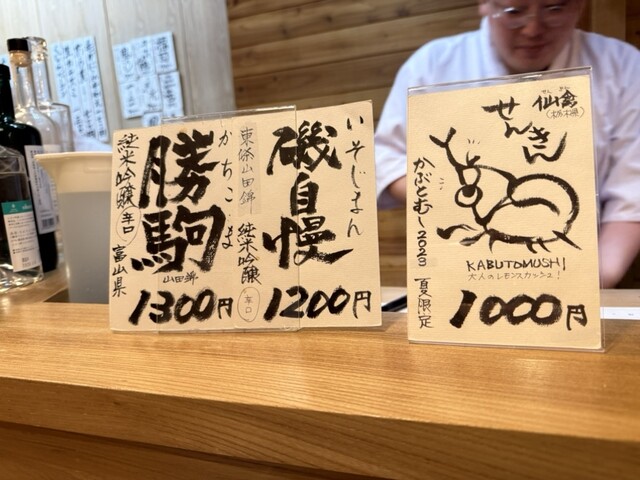 いそじまん
磯自慢
東条山田錦
純米吟醸
辛口
1200円
かちこま
勝駒
山田錦
純米吟醸
辛口
富山県
1300円
仙禽
せんきん
(栃木県)
せんきん
かぶとむし2023
夏限定
KABUTOMUSHI
大人のレモンスカッシュ!
1000円